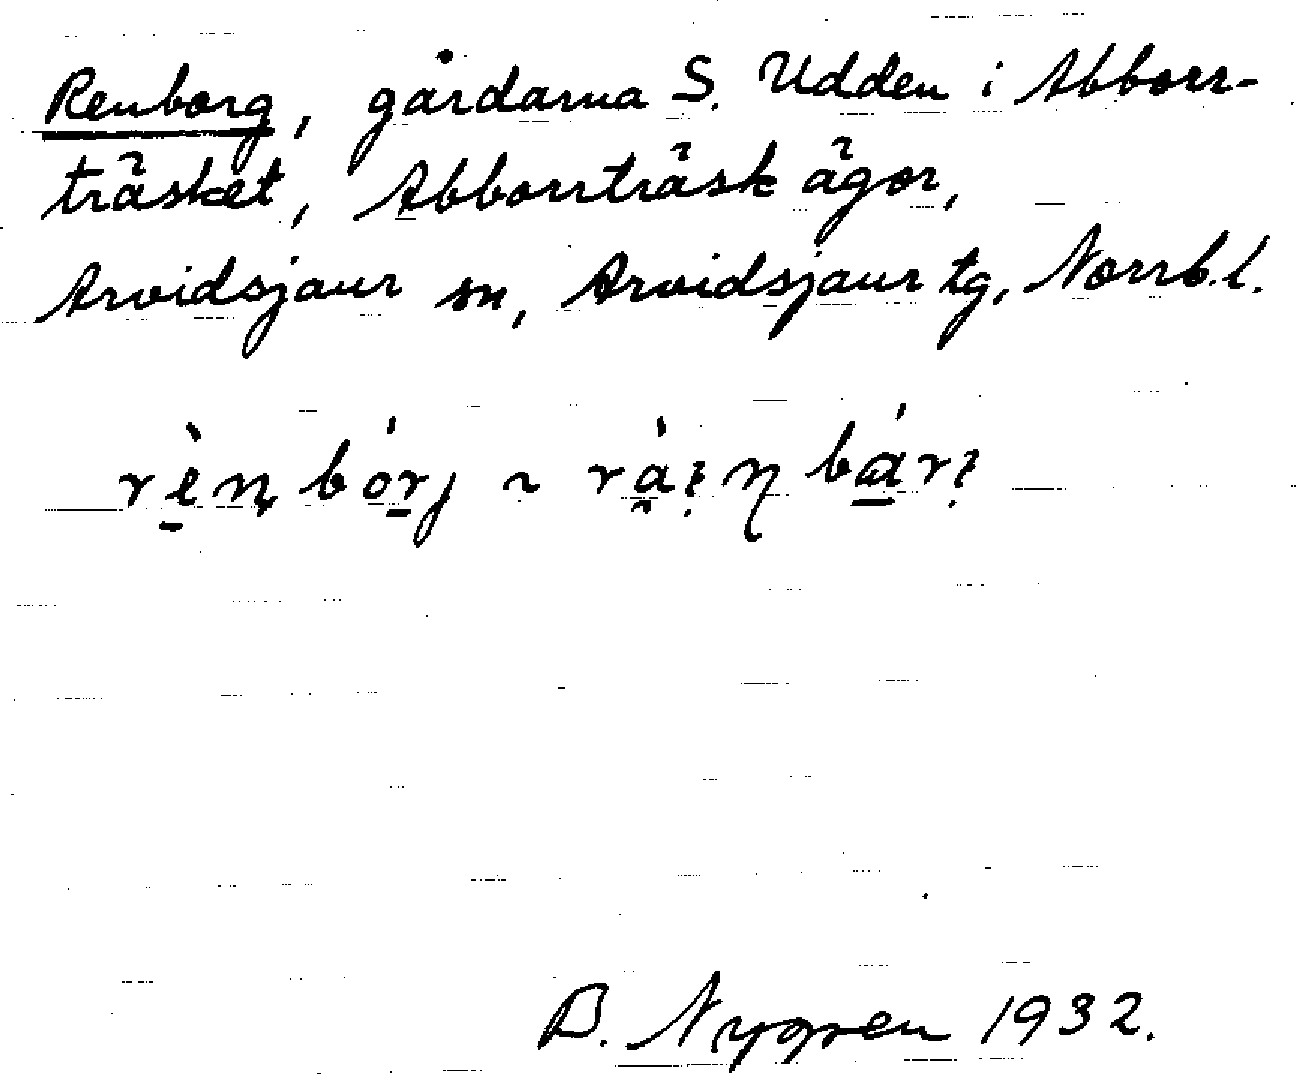 Renborg, gårdarna S. Udden i Abborr-
träsket, Abborrträsk ägor,
Arvidsjaur sn, Arvidsjaur tg, Norrb.l.
B. Nygren 1932.